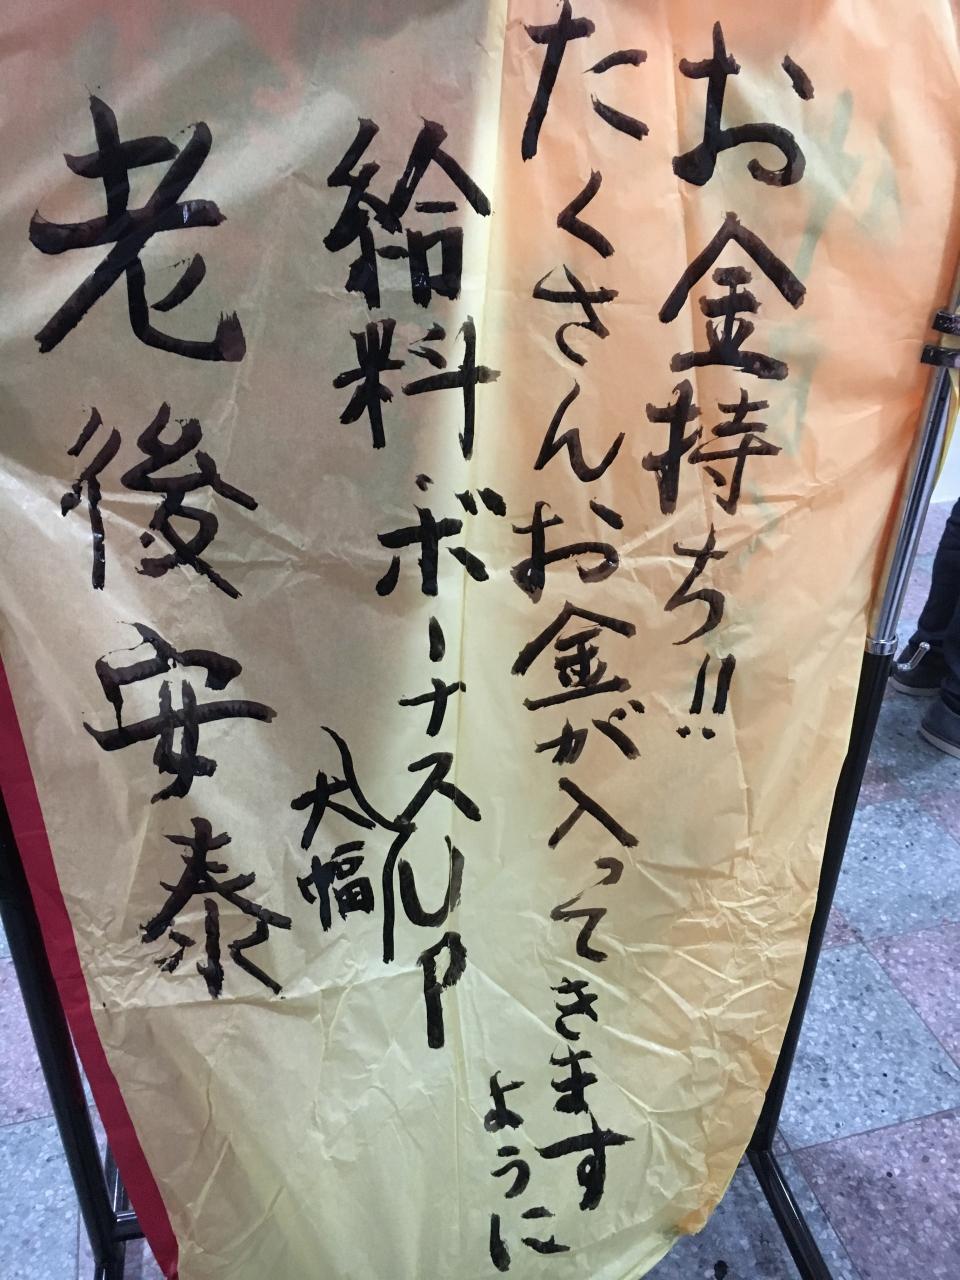 お金持ち!!
たくさんお金が入ってきます
ように
給料ボーナス大幅UP
老後安泰